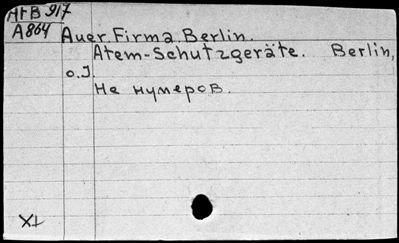 AtB 917
A 864
Auer. Firma. Berlin.
Atem-Schutzgeräte. Berlin,
o. J
Не нумеров.
XI